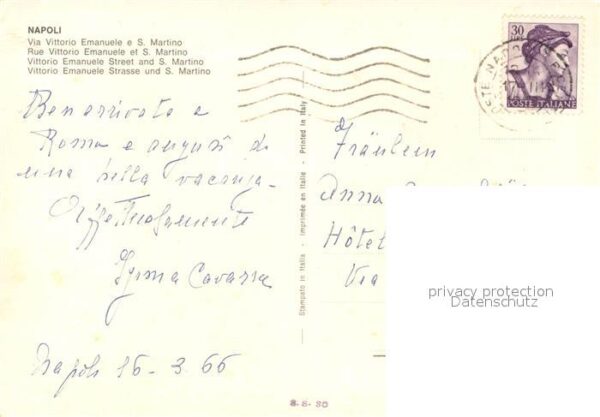 NAPOLI
Via Vittorio Emanuele e S. Martino
Rue Vittorio Emanuele et S. Martino
Vittorio Emanuele Street and S. Martino
Vittorio Emanuele Strasse und S. Martino
30
POSTE ITALIANE
Benarrivata a
Roma e auguri di
una bella vacanza.
Affettuosamente
Napoli 16-3.66
Stampato in Italia - Imprimée en Italie - Printed in Italy
Fräulein
Anna
Hôtel
Via
privacy protection
Datenschutz